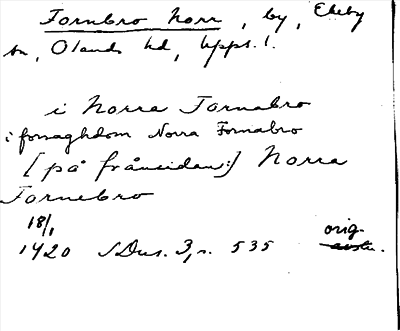 Fornbro Norr, by, Ekeby
sn, Olands hd, Upps. l.
i Norra Fornabro
i forsaghdom Norra Fornabro
[på frånsidan:] Norra
Fornebro
18/1
1420 SDns. 3, s. 535 orig.